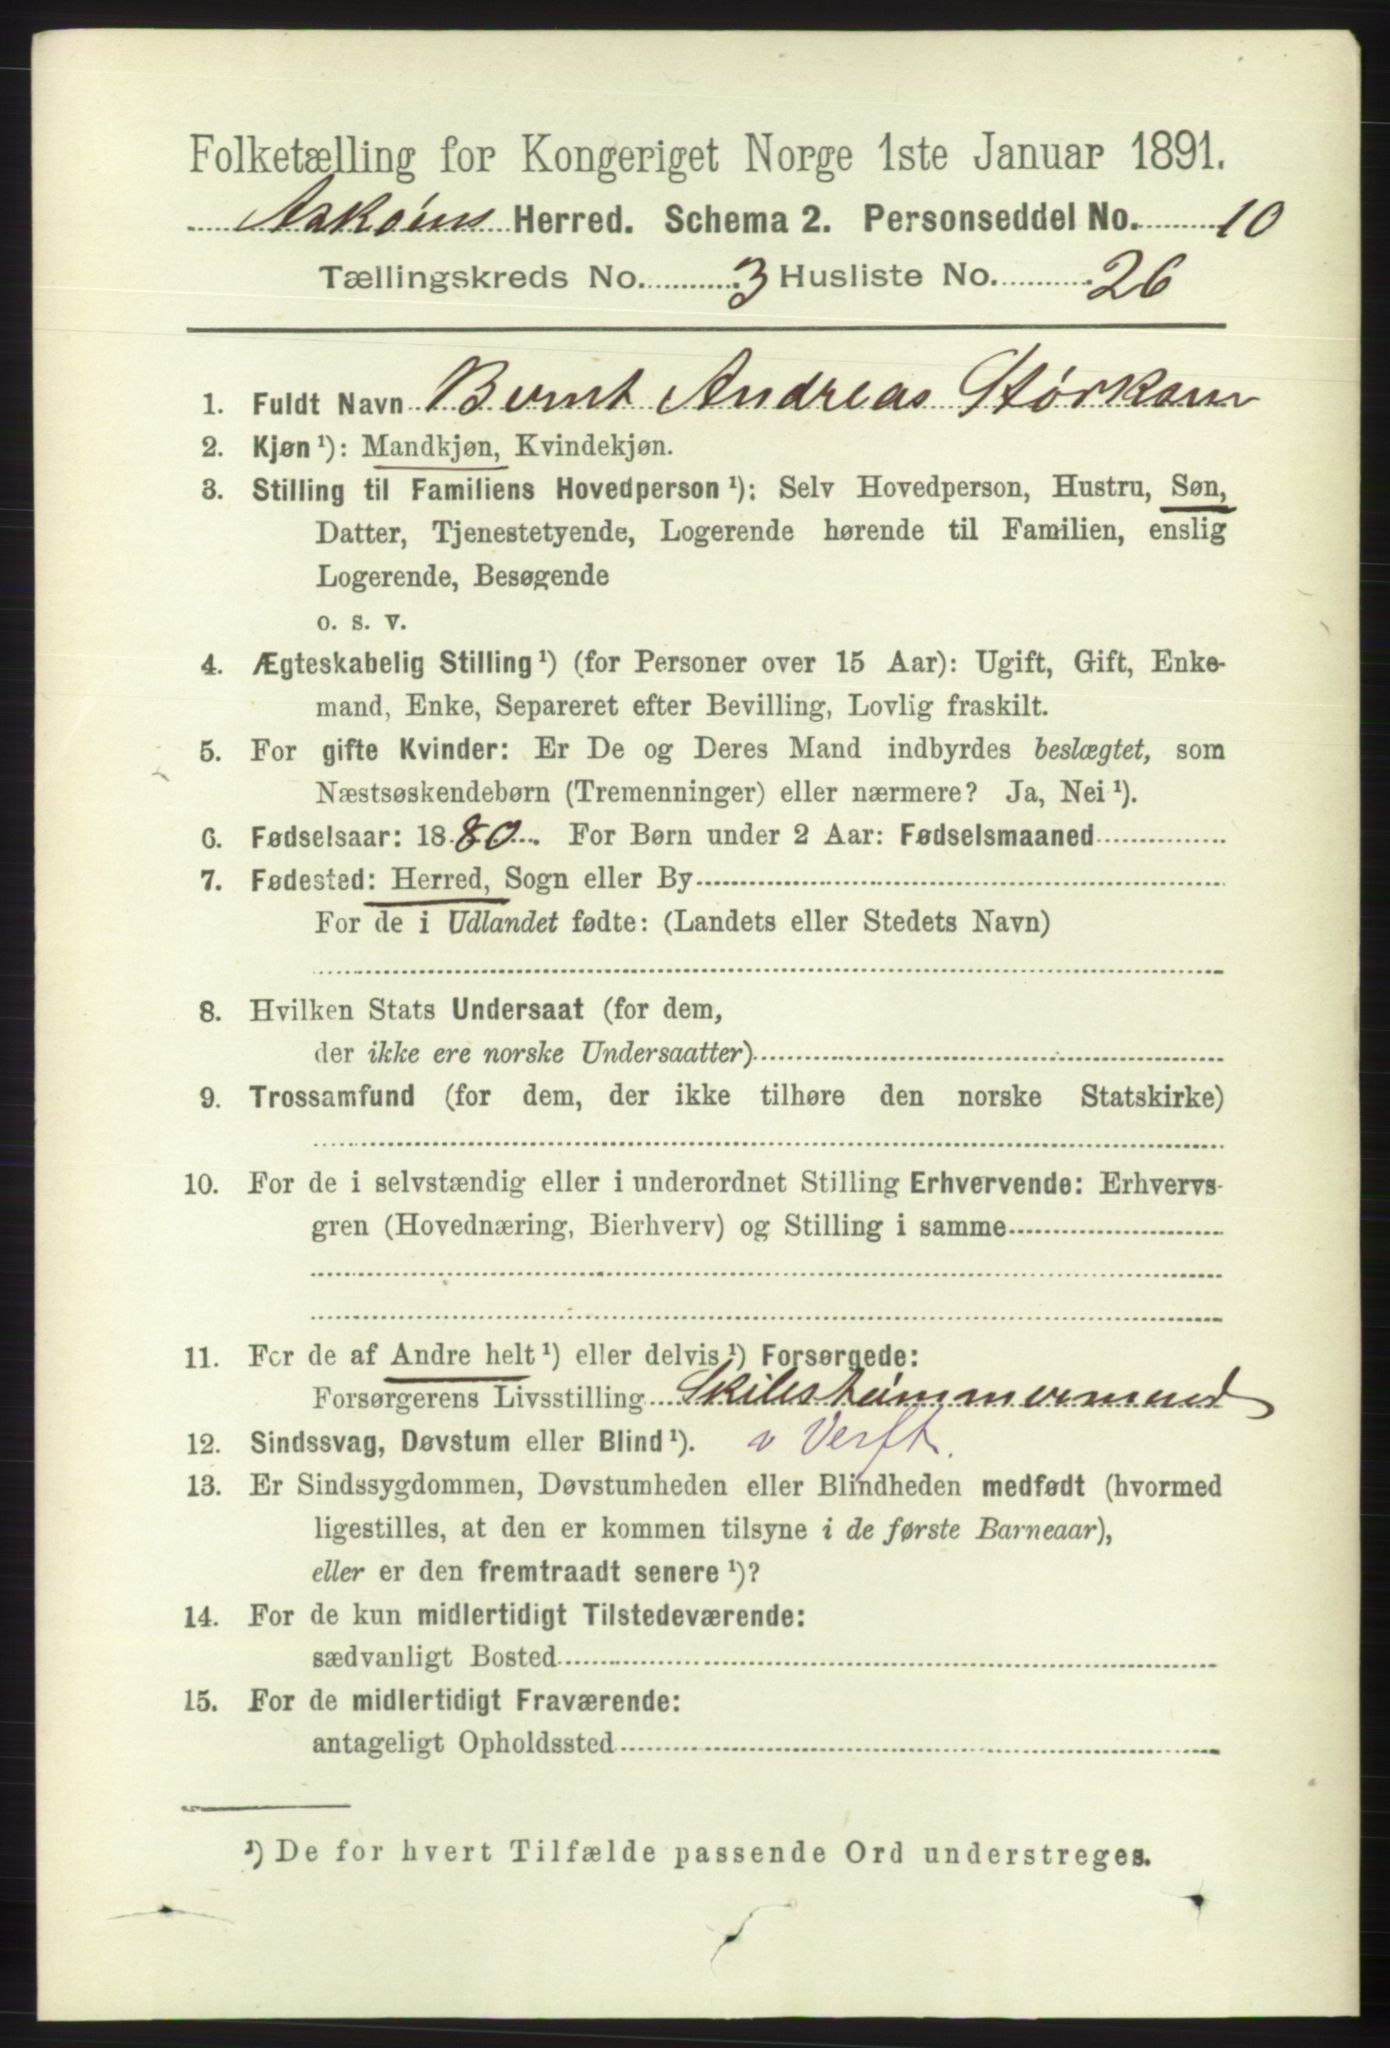 Folketælling for Kongeriget Norge 1ste Januar 1891.
Askøins Herred. Schema 2. Personseddel No. 10
Tællingskreds No. 3 Husliste No. 26
1. Fuldt Navn Bernt Andreas Størksen
2. Kjøn ¹): Mandkjøn, Kvindekjøn.
3. Stilling til Familiens Hovedperson ¹): Selv Hovedperson, Hustru, Søn,
Datter, Tjenestetyende, Logerende hørende til Familien, enslig
Logerende, Besøgende
o. s. v.
4. Ægteskabelig Stilling ¹) (for Personer over 15 Aar): Ugift, Gift, Enke-
mand, Enke, Separeret efter Bevilling, Lovlig fraskilt.
5. For gifte Kvinder: Er De og Deres Mand indbyrdes beslægtet, som
Næstsøskendebørn (Tremenninger) eller nærmere? Ja, Nei ¹).
6. Fødselsaar: 1880. For Børn under 2 Aar: Fødselsmaaned
7. Fødested: Herred, Sogn eller By
For de i Udlandet fødte: (Landets eller Stedets Navn)
8. Hvilken Stats Undersaat (for dem,
der ikke ere norske Undersaatter)
9. Trossamfund (for dem, der ikke tilhøre den norske Statskirke)
10. For de i selvstændig eller i underordnet Stilling Erhvervende: Erhvervs-
gren (Hovednæring, Bierhverv) og Stilling i samme
11. For de af Andre helt ¹) eller delvis ¹) Forsørgede:
Forsørgerens Livsstilling Skibstømmermand
12. Sindssvag, Døvstum eller Blind ¹). v Verft.
13. Er Sindssygdommen, Døvstumheden eller Blindheden medfødt (hvormed
ligestilles, at den er kommen tilsyne i de første Barneaar),
eller er den fremtraadt senere ¹)?
14. For de kun midlertidigt Tilstedeværende:
sædvanligt Bosted
15. For de midlertidigt Fraværende:
antageligt Opholdssted
¹) De for hvert Tilfælde passende Ord understreges.